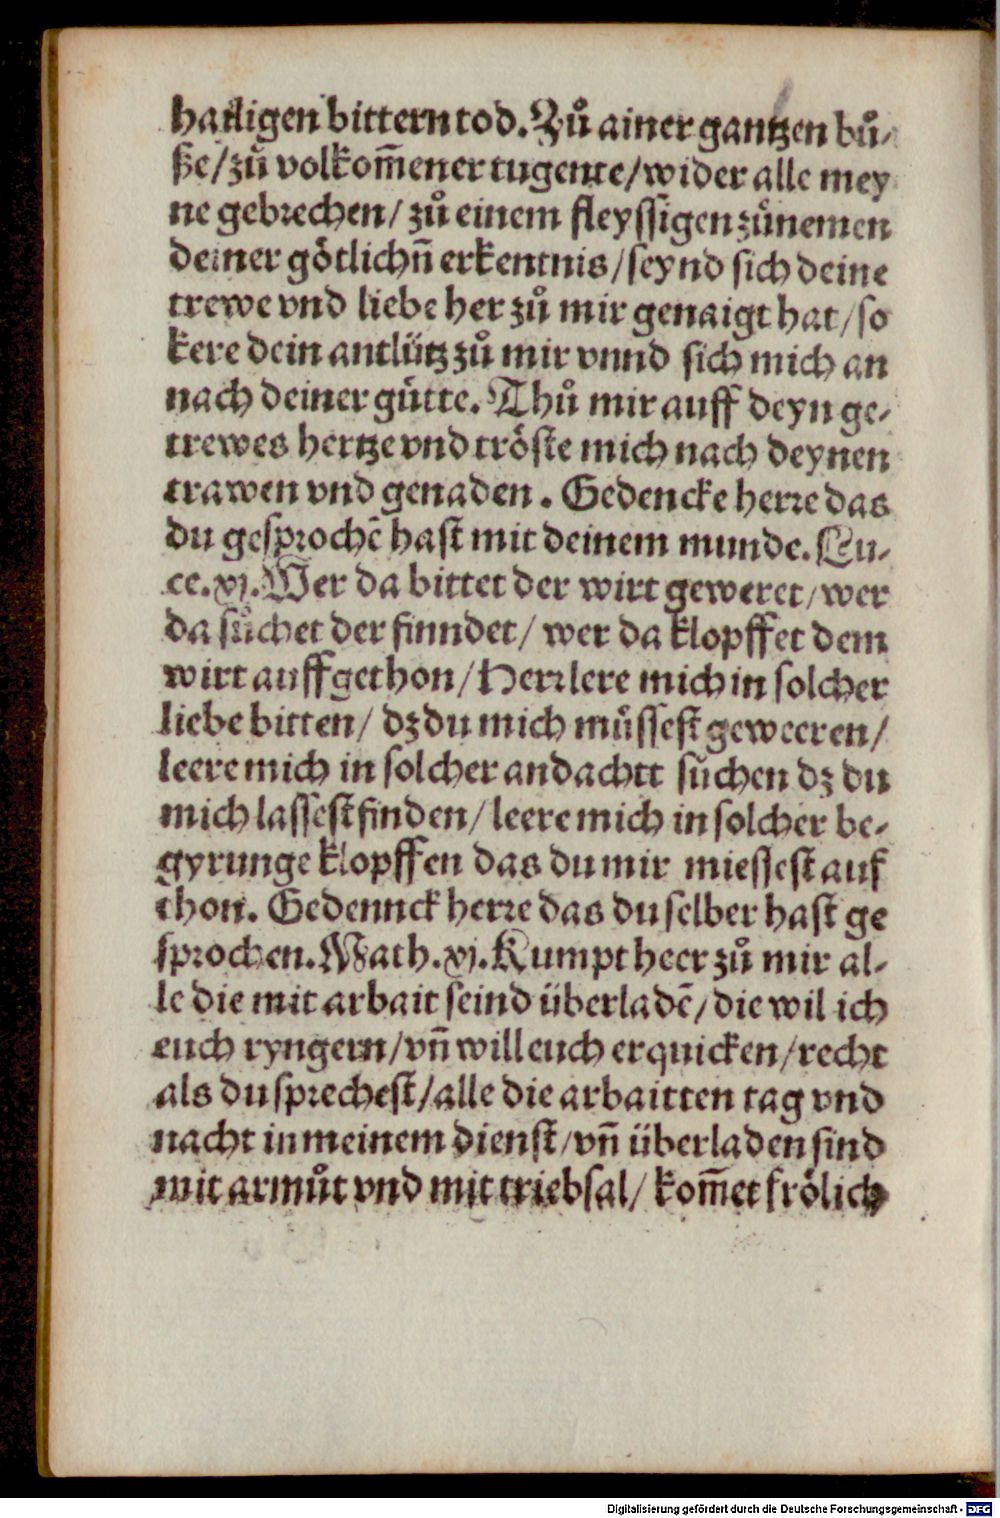 hailigen bittern tod. Zů ainer gantzen bů-
ße/zů volkom̃ener tugente/wider alle mey
ne gebrechen/ zů einem fleyssigen zůnemen
deiner götlichñ erkentnis/seynd sich deine
trewe vnd liebe her zů mir genaigt hat/so
kere dein antlütz zů mir vnnd sich mich an
nach deiner gütte. Thů mir auff deyn ge-
trewes hertze vnd tröste mich nach deynen
trawen vnd genaden. Gedencke herre das
du gesprochē hast mit deinem munde. Lu-
ce.xj. Wer da bittet der wirt geweret/wer
da sůchet der finndet/ wer da klopffet dem
wirt auffgethon/Herr lere mich in solcher
liebe bitten/ dz du mich můssest geweeren/
leere mich in solcher andachtt sůchen dz du
mich lassest finden/leere mich in solcher be-
gyrunge klopffen das du mir miessest auf
thon. Gedennck herre das du selber hast ge
sprochen. Math.xj. Kumpt heer zů mir al-
le die mit arbait seind überladē/die wil ich
euch ryngern/vñ will euch erquicken/recht
als du sprechest/alle die arbaitten tag vnd
nacht in meinem dienst/vñ überladen sind
mit armůt vnd mit triebsal/ kom̃et frölich
Digitalisierung gefördert durch die Deutsche Forschungsgemeinschaft - DFG